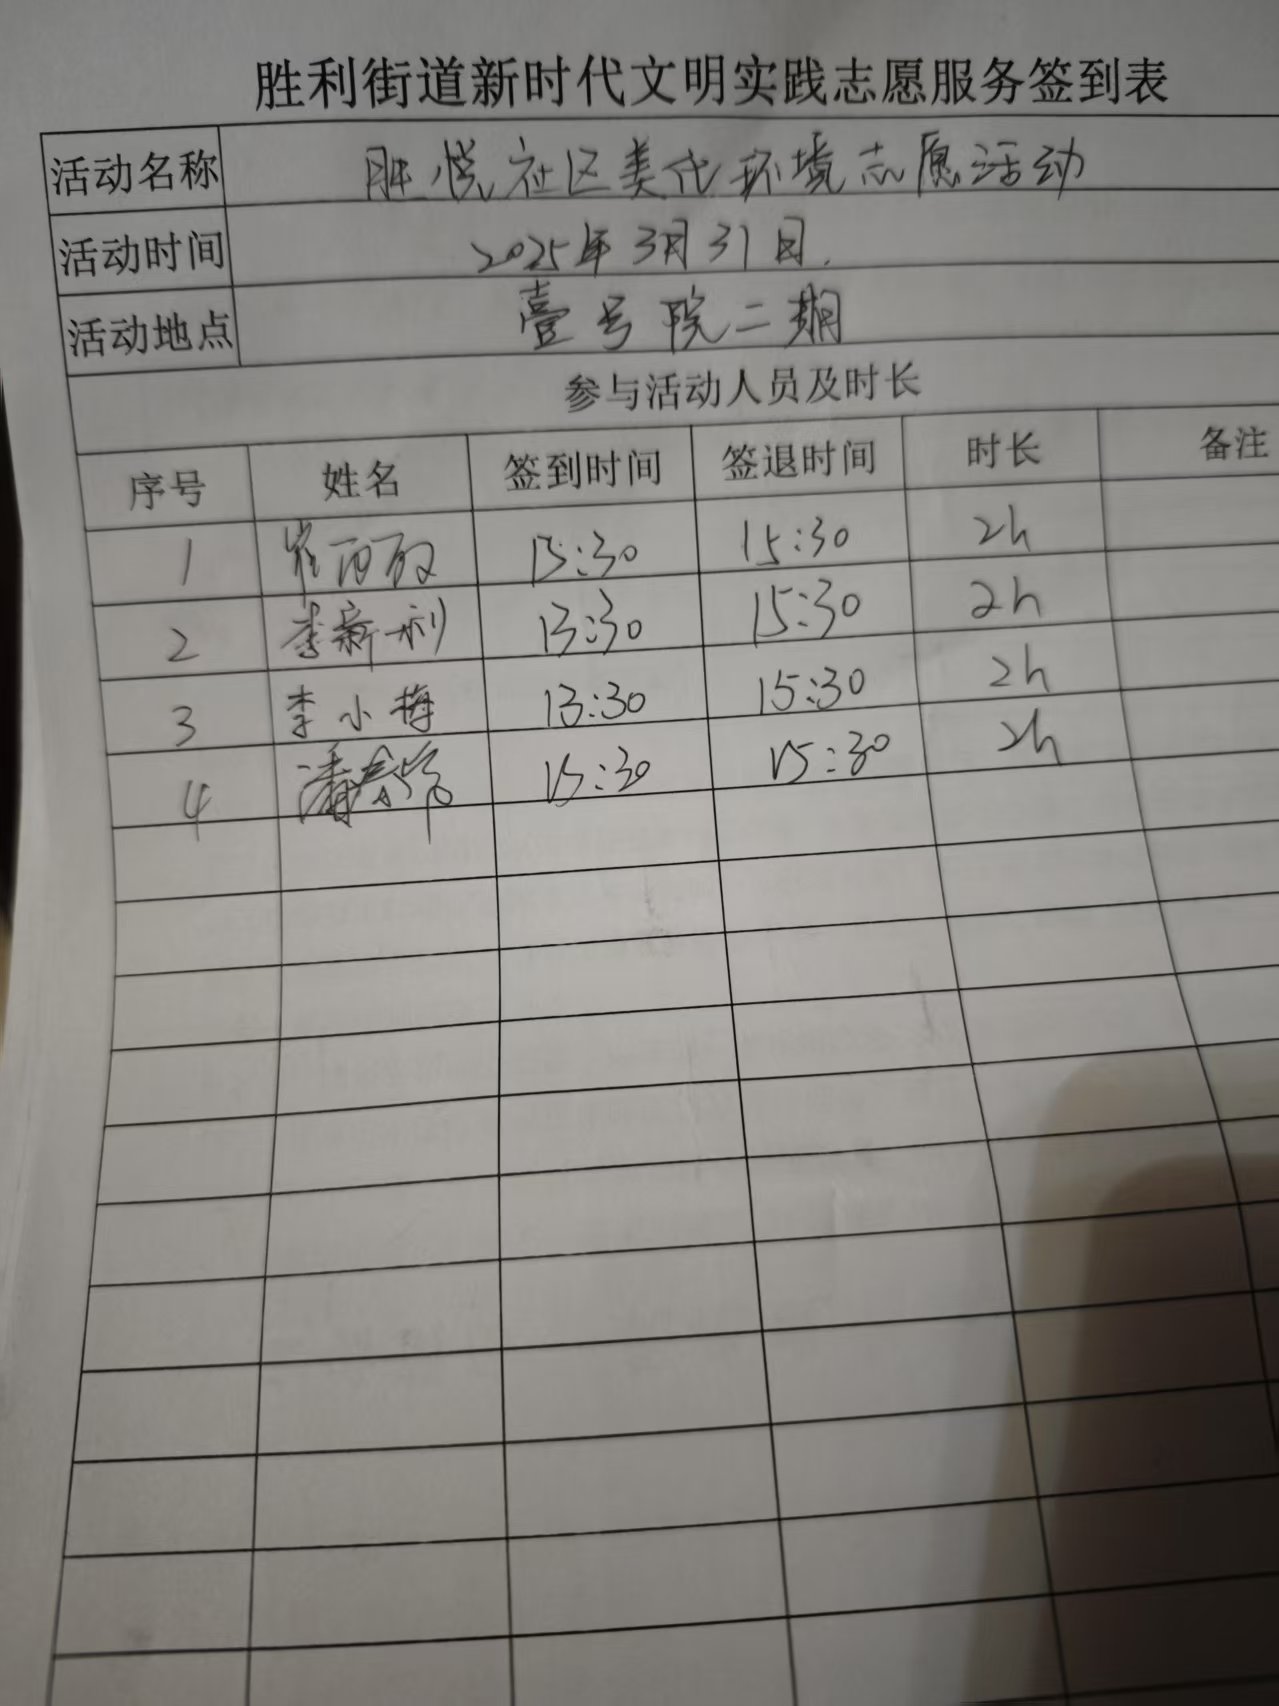 胜利街道新时代文明实践志愿服务签到表
活动名称 胜悦社区美化环境志愿活动
活动时间 2025年3月31日.
活动地点 壹号院二期
参与活动人员及时长
序号 姓名 签到时间 签退时间 时长 备注
1 崔 13:30 15:30 2h
2 李新利 13:30 15:30 2h
3 李小梅 13:30 15:30 2h
4 潘 13:30 15:30 2h